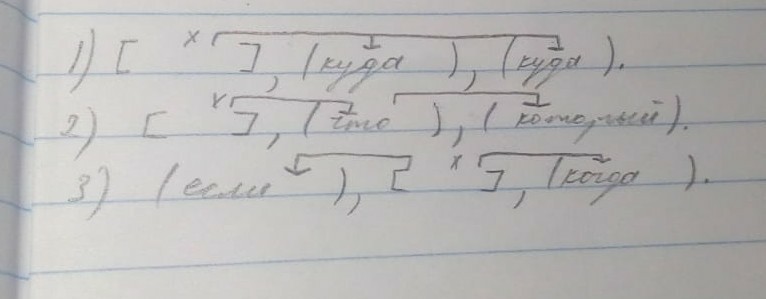 1) [ х ], (куда ), (куда ).
2) [ х ], (что ), (который).
3) (если ), [ х ], (когда ).